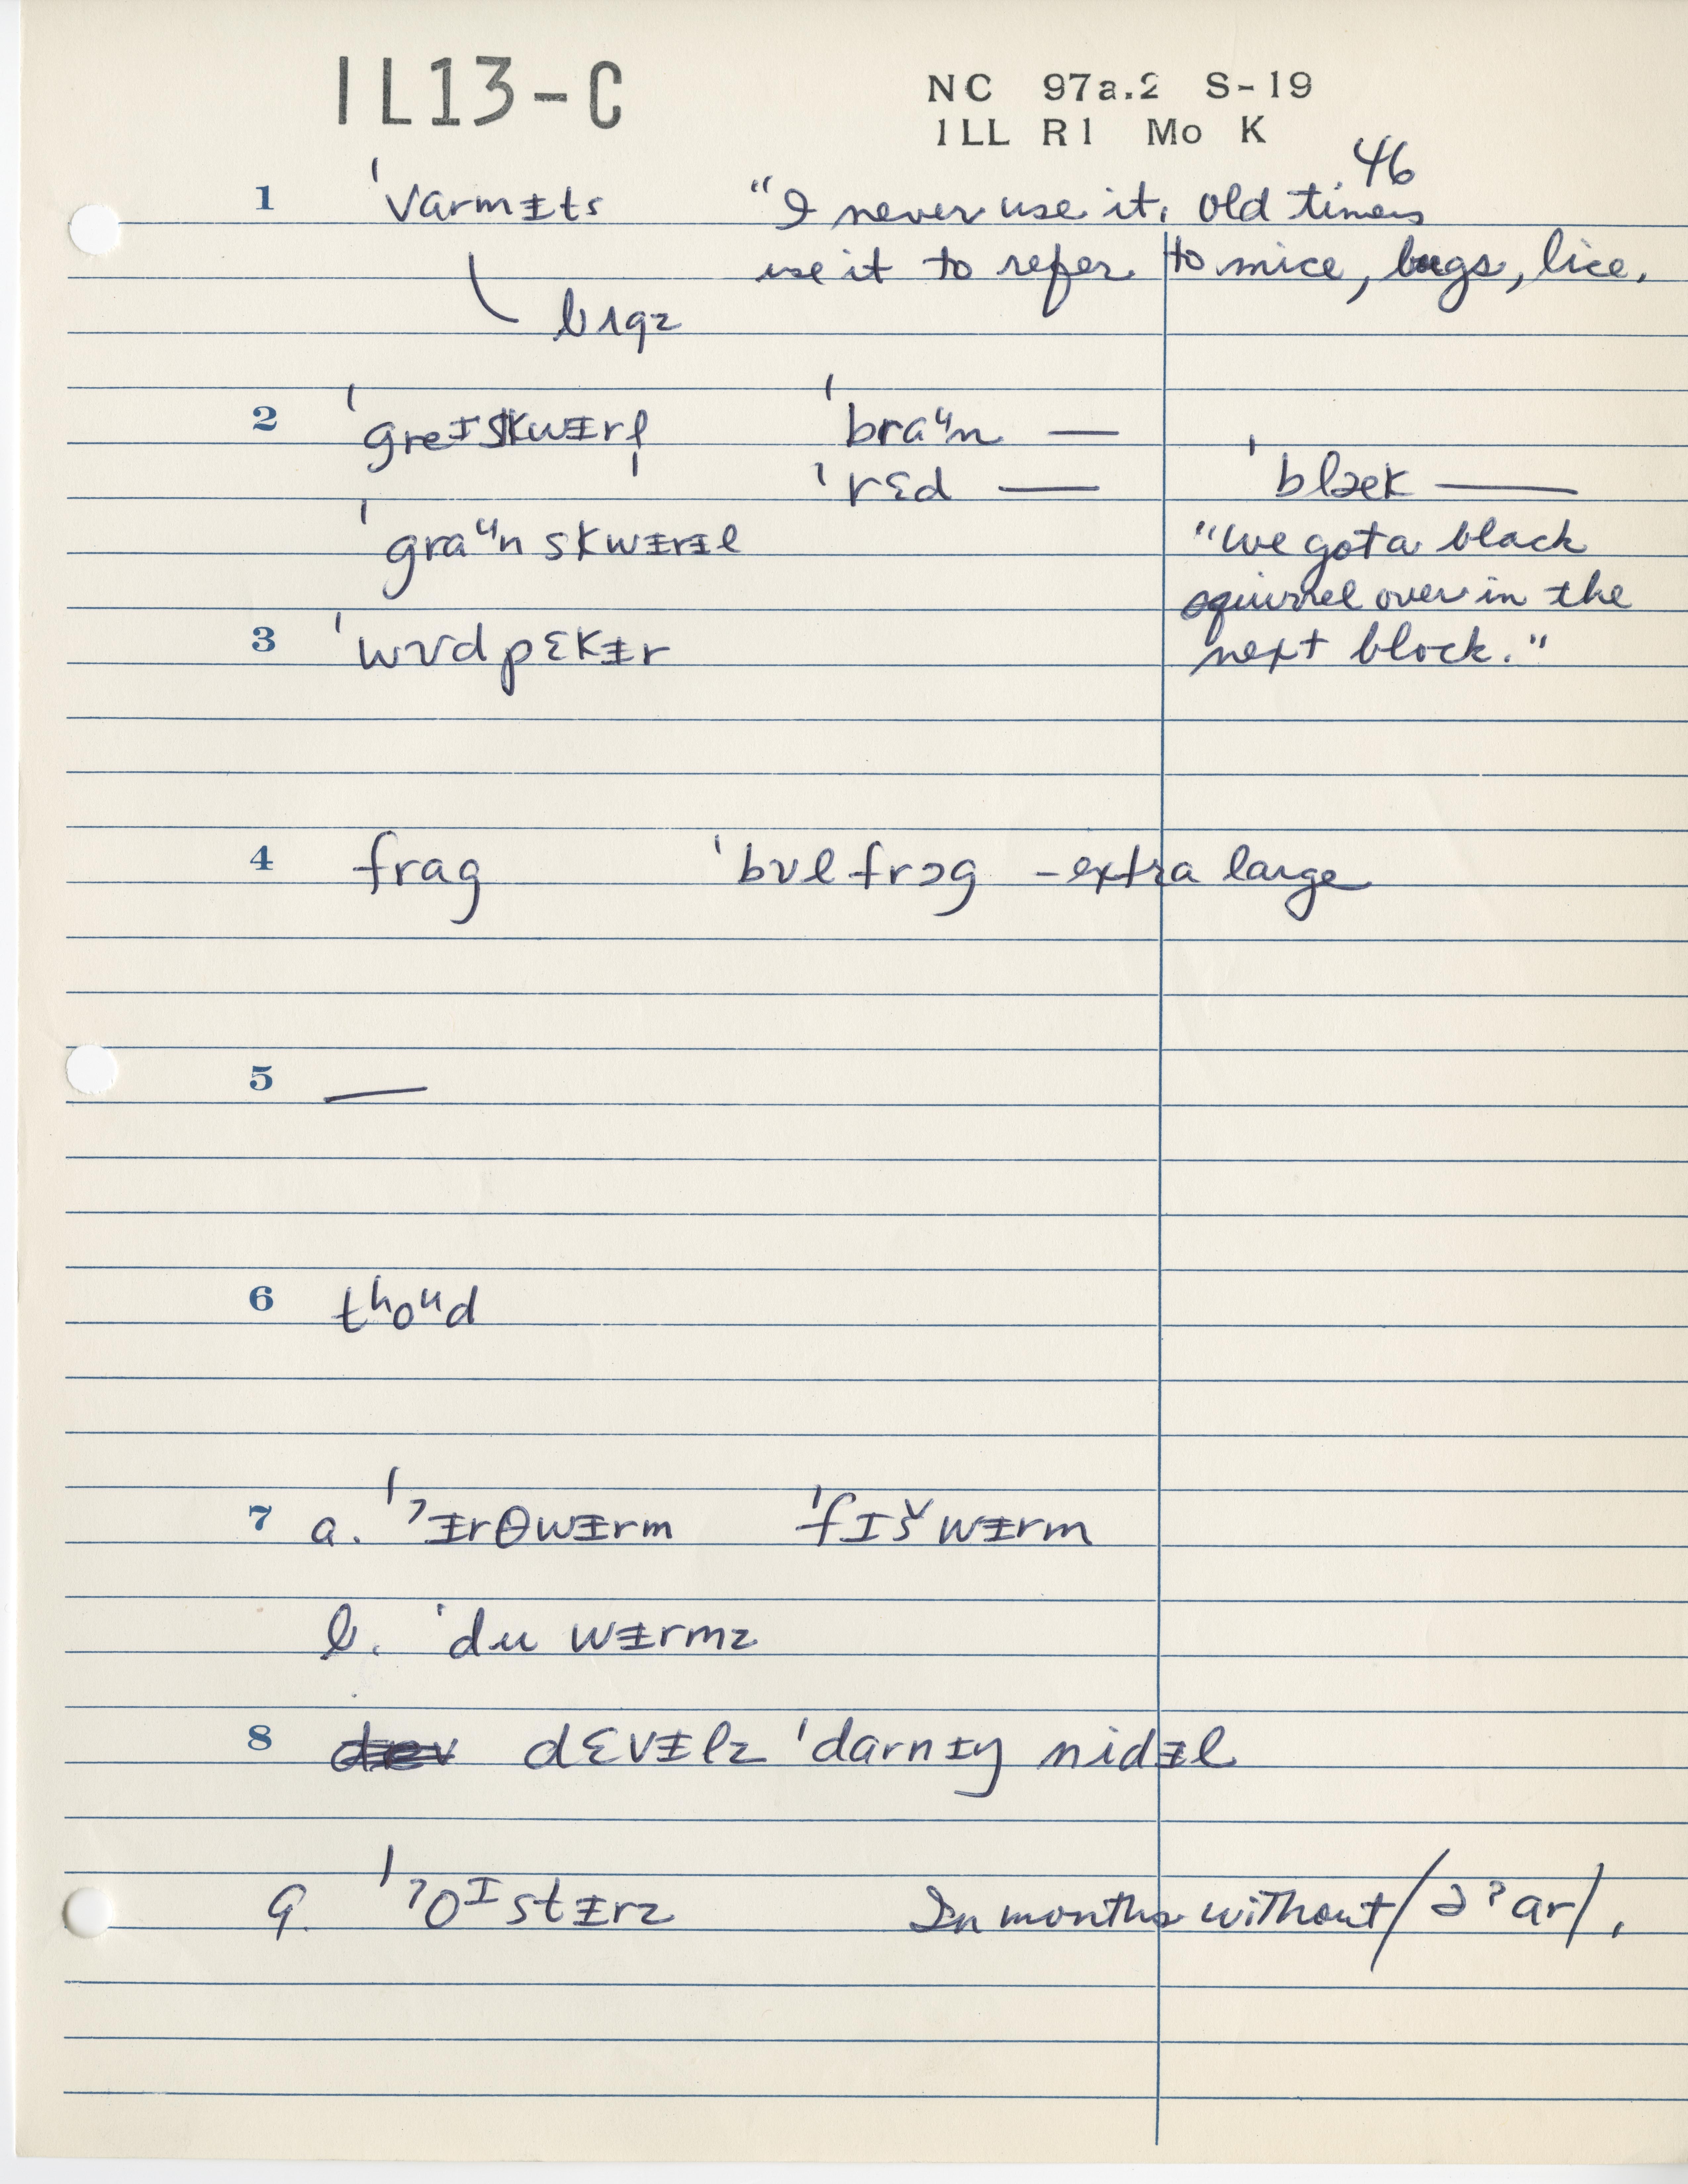 IL13-C
NC 97a.2 S-19
ILL R1 Mo K
46
1 ˈvarmᵻts "I never use it. Old timers
use it to refer to mice, bugs, lice.
bʌgz
2 ˈgreᶦskwᵻrl̩ ˈbraᵘn —
ˈrɛd — ˈblæk —
ˈgraᵘn skwᵻrᵻl "We got a black
squirrel over in the
3 ˈwʊdpɛkᵻr next block."
4 frag ˈbʊlfrɔg – extra large
5 —
6 tʰoᵘd
7 a. ˈʔᵻrθwᵻrm ˈfɪšwᵻrm
b. ˈdu wᵻrmz
8 dɛvᵻlz ˈdarnɪŋ nidᵻl
9. ˈʔoᶦstᵻrz In months without /əʔar/.